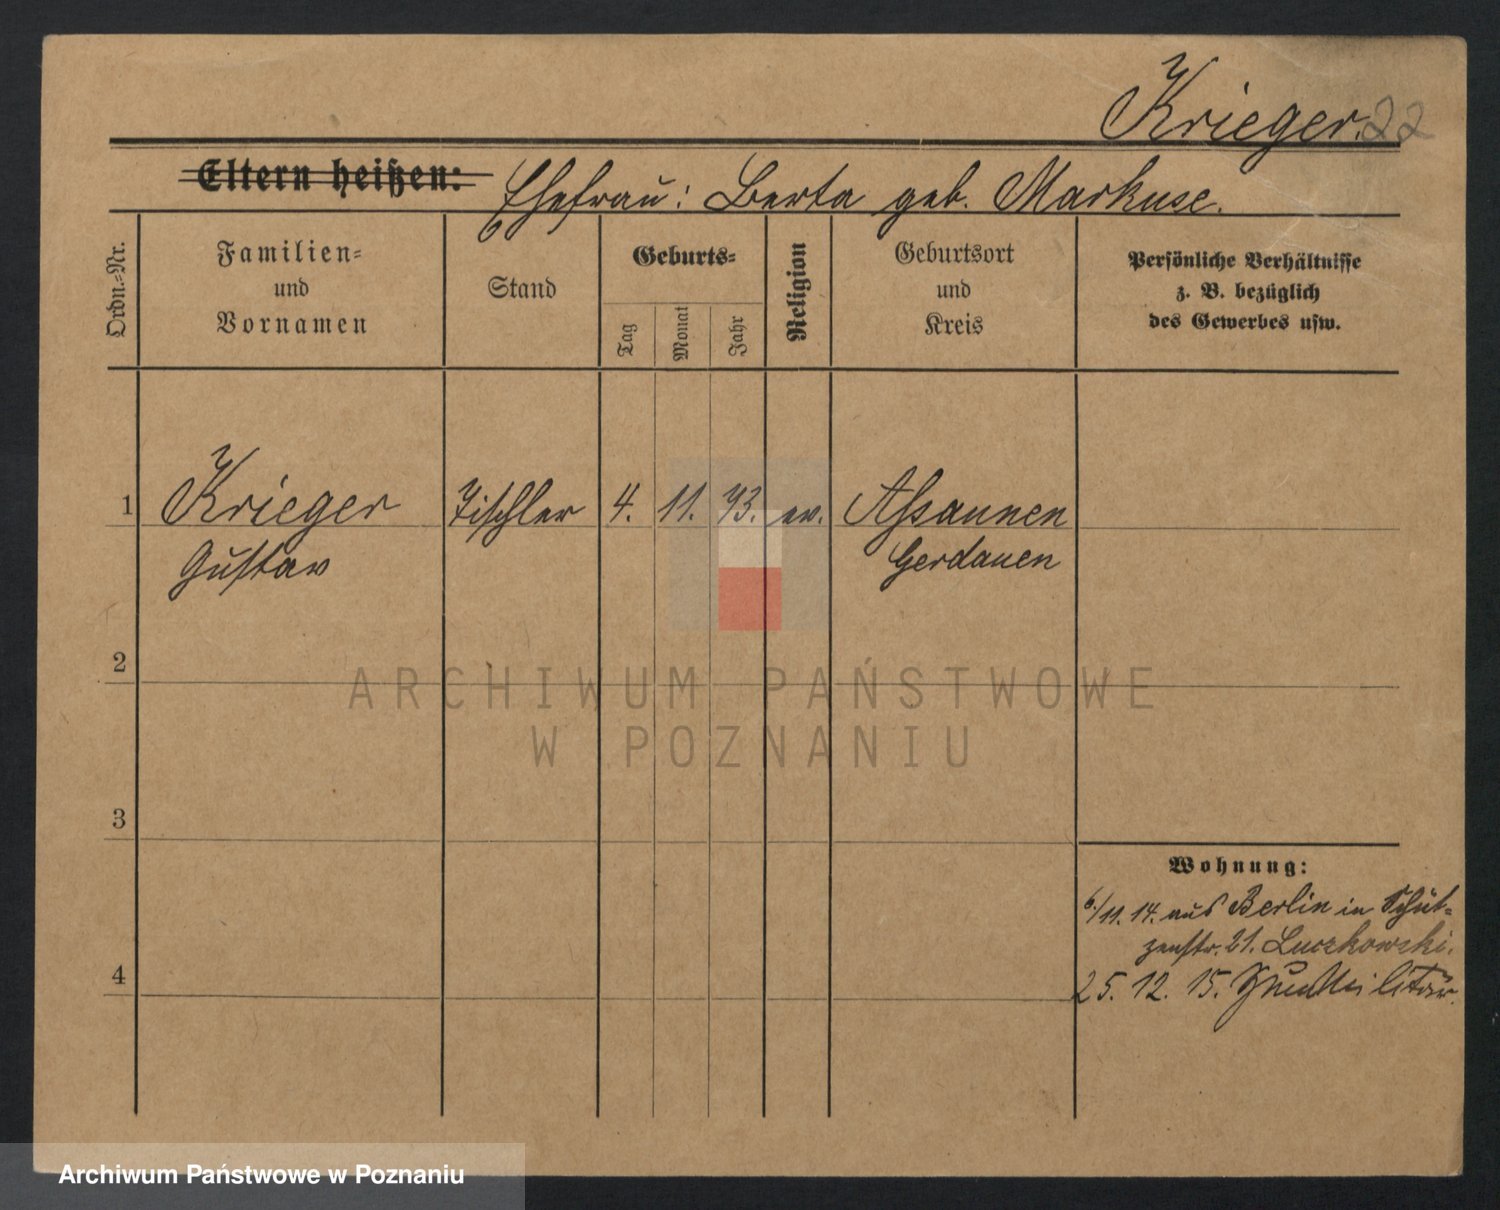 Krieger. 22
Eltern heißen: Ehefrau: Berta geb. Markuse.
Ordn.-Nr.
Familien-
und
Vornamen
Stand
Geburts-
Tag
Monat
Jahr
Religion
Geburtsort
und
Kreis
Persönliche Verhältnisse
z. B. bezüglich
des Gewerbes usw.
1 Krieger Tischler 4. 11. 73. ev. Assaunen
Gustav Gerdauen
2
ARCHIWUM PAŃSTWOWE
W POZNANIU
3
Wohnung:
6/11. 14. aus Berlin in Schüt-
zenstr. 21. Luczkowski.
4
25. 12. 15. Zum Militär.
Archiwum Państwowe w Poznaniu